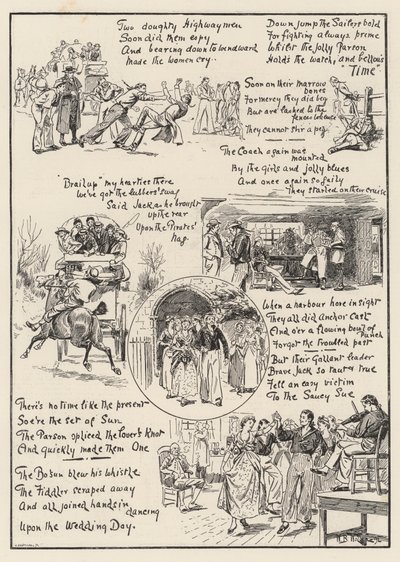 Two doughty Highwaymen
Soon did them espy
And bearing down to windward
Made the women cry.
Down jump the Sailors bold
For fighting always prime
Whilst the Jolly Parson
Holds the watch, and bellows
"Time"
Soon on their marrow
bones
For mercy they did beg
But are lashed to the
fences
They cannot stir a peg
The Coach again was
mounted
By the girls and jolly blues
And once again so gaily
They started on their cruise
"Brail up" my hearties there
We've got the lubbers' swag
Said Jack, as he brought
up the rear
Upon the Pirates'
nag.
When a harbour hove in sight
They all did Anchor Cast
And o'er a flowing bowl of
Punch
Forgot the troubled past
But their Gallant leader
Brave Jack so taut & true
Fell an easy victim
To the Saucy Sue
There's no time like the present
So e're the set of Sun
The Parson spliced the lover's Knot
And quickly made them One
The Bo'sun blew his whistle
The Fiddler scraped away
And all joined hands in
dancing
Upon the Wedding Day.